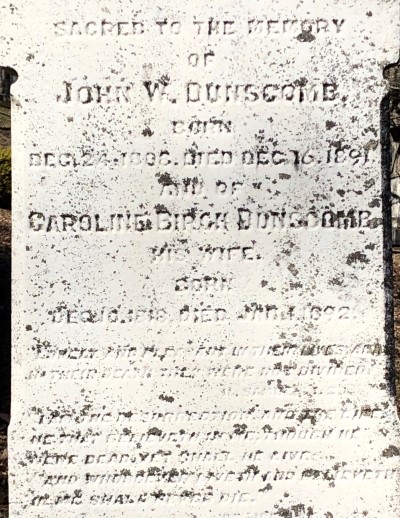 SACRED TO THE MEMORY
OF
JOHN W. DUNSCOMB,
BORN
DEC. 24, DIED DEC. 16, 1891
AND OF
CAROLINE BIRCH DUNSCOMB
HIS WIFE.
BORN
DEC. DIED JAN. 1892.
IN THEIR LIVES AND
IN THEIR DEATH THEY WERE NOT DIVIDED
II. SAMUEL
RESURRECTION AND THE LIFE
HE THAT BELIEVETH IN ME THOUGH HE
WERE DEAD, YET SHALL HE LIVE:
AND WHOSOEVER LIVETH AND BELIEVETH
IN ME SHALL NEVER DIE.